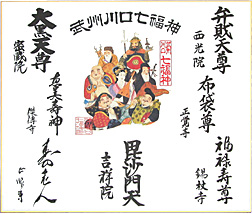 武州川口七福神
弁財天尊
西光院
布袋尊
正覚寺
福禄寿尊
錫杖寺
七福神
毘沙門天
吉祥院
大黒天尊
密蔵院
傑傳寺
寿老人
正眼寺